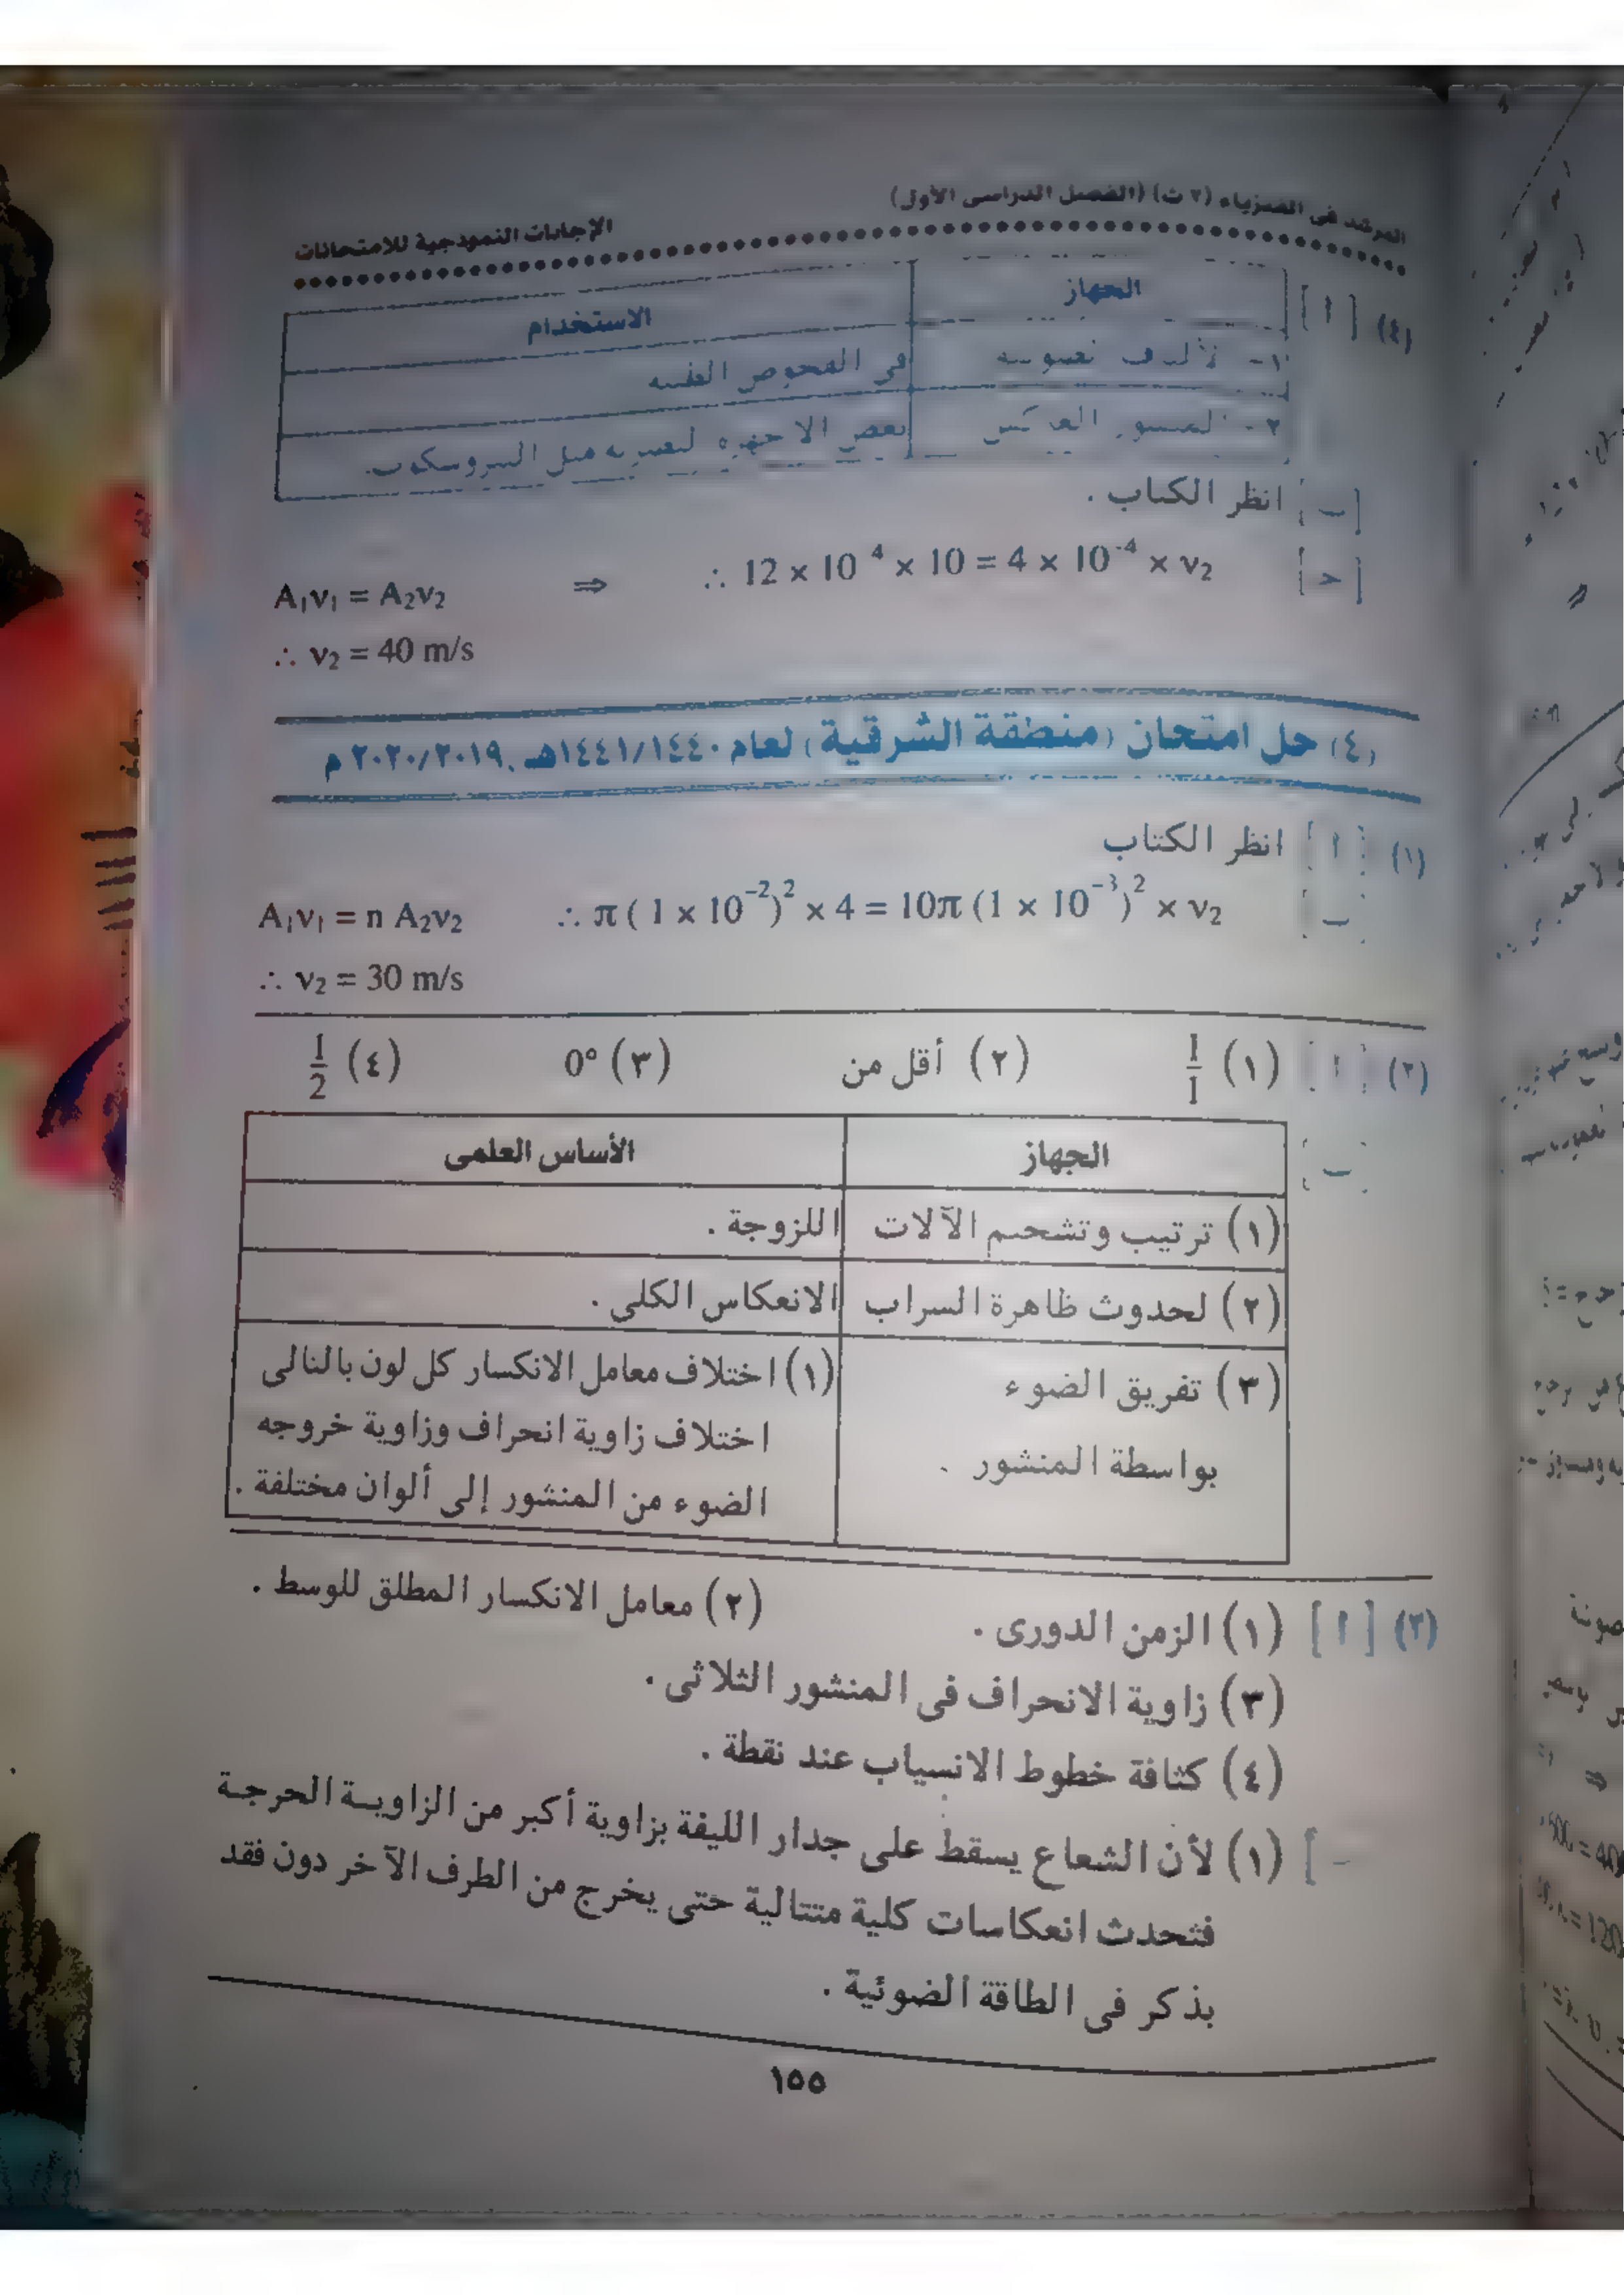 المرشد فى الفيزياء (٢ ث) (الفصل الدراسى الأول)
الإجابات النموذجية للامتحانات
(٤) [أ]
الجهاز
الاستخدام
١-
فى الفحوص الطبية
٢- المنشور العاكس
بعض الأجهزة البصرية مثل البيروسكوب.
[ب] انظر الكتاب .
[جـ] A₁v₁ = A₂v₂ ⇒ ∴ 12 × 10⁻⁴ × 10 = 4 × 10⁻⁴ × v₂
∴ v₂ = 40 m/s
(٤) حل امتحان (منطقة الشرقية) لعام ١٤٤١/١٤٤٠هـ ، ٢٠٢٠/٢٠١٩ م
(١) [أ] انظر الكتاب
[ب] A₁v₁ = n A₂v₂ ∴ π ( 1 × 10⁻²)² × 4 = 10π (1 × 10⁻³)² × v₂
∴ v₂ = 30 m/s
(٢) [أ] (١) 1/1 (٢) أقل من (٣) 0° (٤) 1/2
[ب] الجهاز
الأساس العلمى
(١) ترتيب وتشحيم الآلات
اللزوجة .
(٢) لحدوث ظاهرة السراب
الانعكاس الكلى .
(٣) تفريق الضوء
بواسطة المنشور .
(١) اختلاف معامل الانكسار كل لون بالتالى
اختلاف زاوية انحراف وزاوية خروجه
الضوء من المنشور إلى ألوان مختلفة .
(٣) [أ] (١) الزمن الدورى . (٢) معامل الانكسار المطلق للوسط .
(٣) زاوية الانحراف فى المنشور الثلاثى .
(٤) كثافة خطوط الانسياب عند نقطة .
[ب] (١) لأن الشعاع يسقط على جدار الليفة بزاوية أكبر من الزاوية الحرجة
فتحدث انعكاسات كلية متتالية حتى يخرج من الطرف الآخر دون فقد
بذكر فى الطاقة الضوئية .
١٥٥